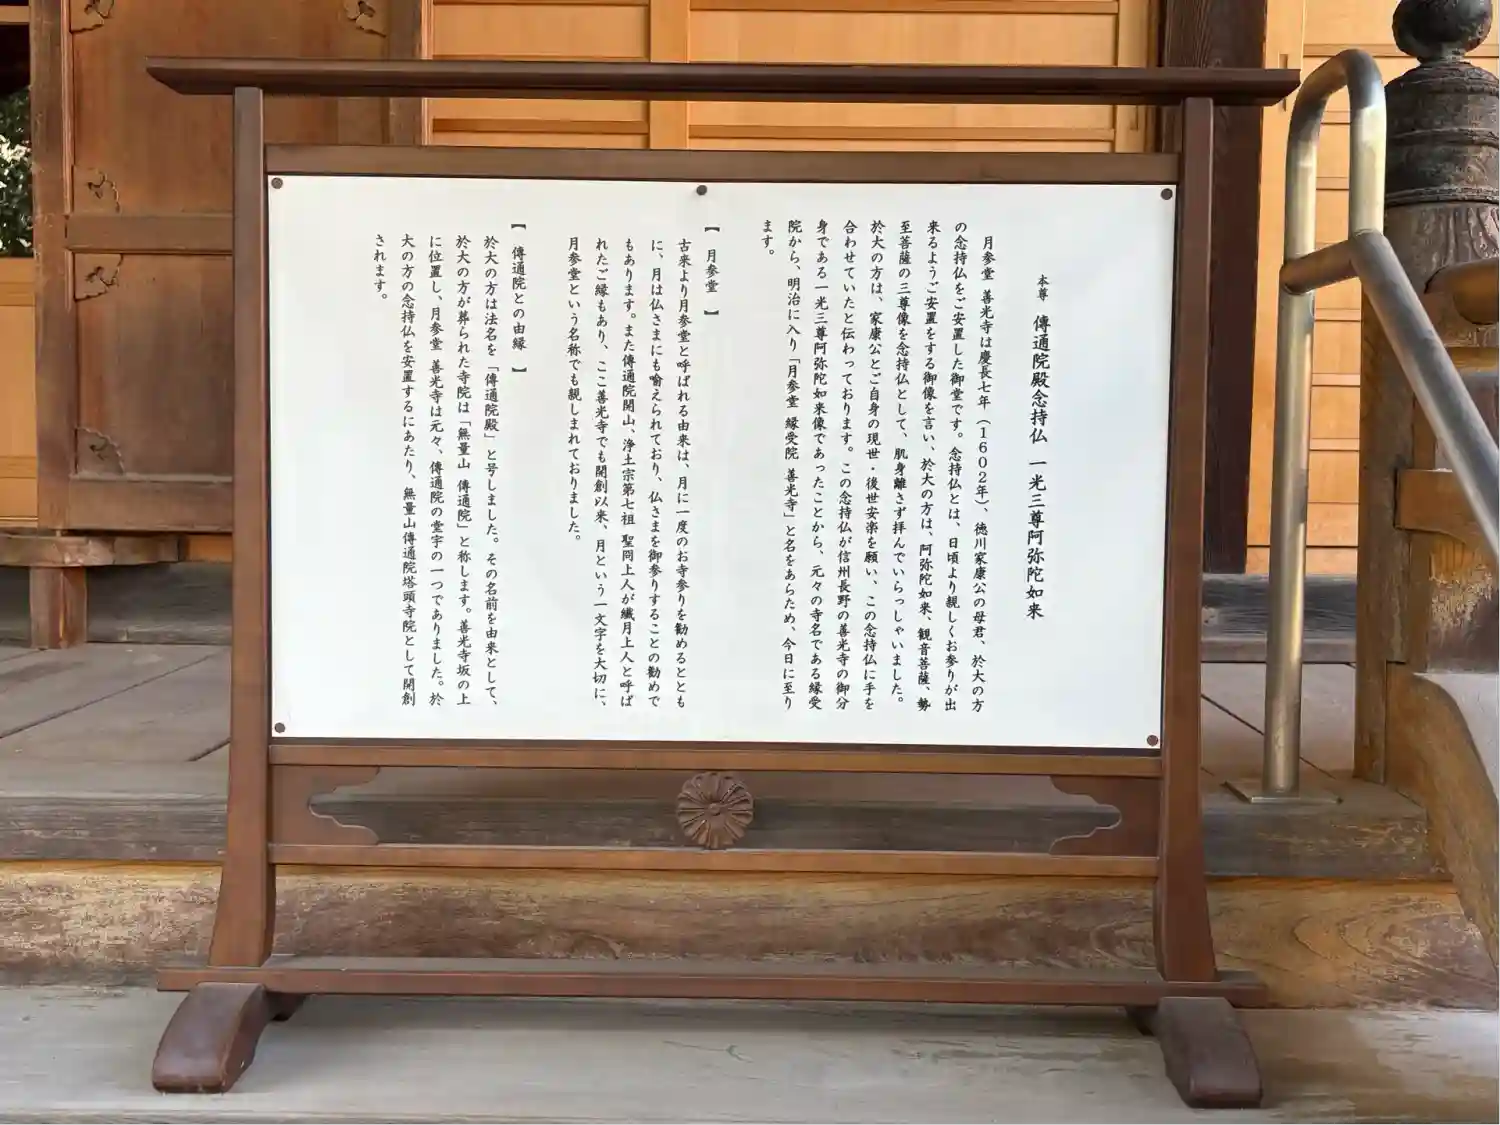 本尊 傳通院殿念持仏 一光三尊阿弥陀如来
月参堂 善光寺は慶長七年（1602年）、徳川家康公の母君、於大の方
の念持仏をご安置した御堂です。念持仏とは、日頃より親しくお参りが出
来るようご安置をする御像を言い、於大の方は、阿弥陀如来、観音菩薩、勢
至菩薩の三尊像を念持仏として、肌身離さず拝んでいらっしゃいました。
於大の方は、家康公とご自身の現世・後世安楽を願い、この念持仏に手を
合わせていたと伝わっております。この念持仏が信州長野の善光寺の御分
身である一光三尊阿弥陀如来像であったことから、元々の寺名である縁受
院から、明治に入り「月参堂 縁受院 善光寺」と名をあらため、今日に至り
ます。
【 月参堂 】
古来より月参堂と呼ばれる由来は、月に一度のお寺参りを勧めるととも
に、月は仏さまにも喩えられており、仏さまを御参りすることの勧めで
もあります。また傳通院開山、浄土宗第七祖 聖冏上人が繊月上人と呼ば
れたご縁もあり、ここ善光寺でも開創以来、月という一文字を大切に、
月参堂という名称でも親しまれておりました。
【 傳通院との由縁 】
於大の方は法名を「傳通院殿」と号しました。その名前を由来として、
於大の方が葬られた寺院は「無量山 傳通院」と称します。善光寺坂の上
に位置し、月参堂 善光寺は元々、傳通院の堂宇の一つでありました。於
大の方の念持仏を安置するにあたり、無量山傳通院塔頭寺院として開創
されます。